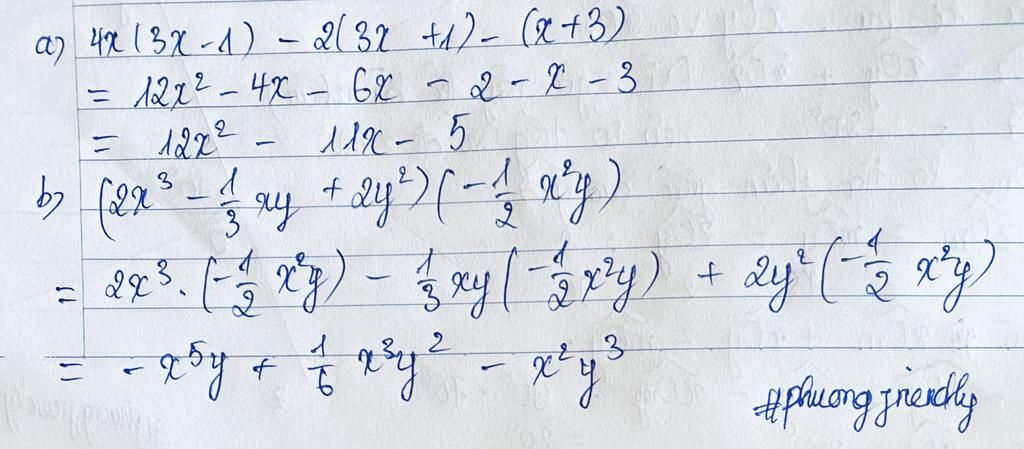 a) 4x(3x-1) - 2(3x +1) - (x+3)
= 12x² - 4x - 6x - 2 - x - 3
= 12x² - 11x - 5
b) (2x³ - 1/3 xy + 2y²)(-1/2 x²y)
= 2x³.(-1/2 x²y) - 1/3 xy(-1/2 x²y) + 2y²(-1/2 x²y)
= -x⁵y + 1/6 x³y² - x²y³
#phuong friendly